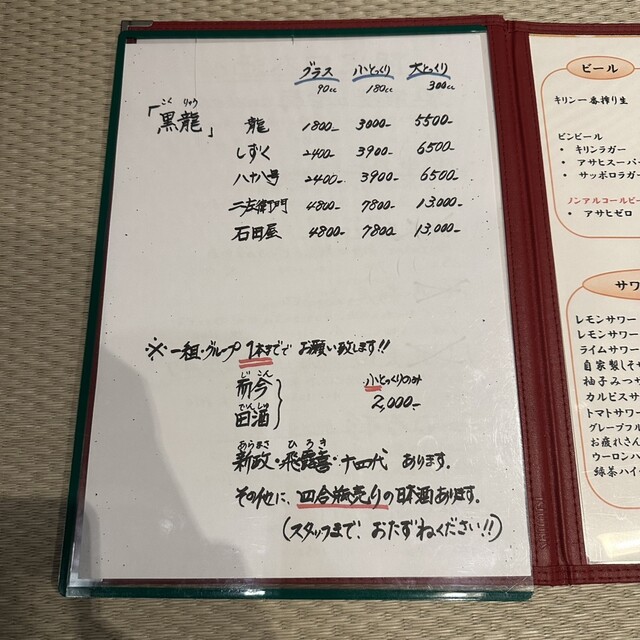 グラス 小とっくり 大とっくり
90cc 180cc 300cc
こくりゅう
「黒龍」 龍 1800- 3000- 5500-
しずく 2400- 3900- 6500-
八十八号 2400- 3900- 6500-
二左衛門 4800- 7800- 13,000-
石田屋 4800- 7800- 13,000-
※一組・グループ 1本までで お願い致します!!
じこん
而今
でんしゅ
田酒
小とっくりのみ
2,000-
あらまさ ひろき
新政・飛露喜・十四代 あります。
その他に、四合瓶売りの日本酒あります。
(スタッフまで、おたずねください!!)
ビール
キリン一番搾り生
ビンビール
• キリンラガー
• アサヒスーパー
• サッポロラガー
ノンアルコールビー
• アサヒゼロ
サワ
レモンサワー
レモンサワー
ライムサワー
自家製しそサ
柚子みつサ
カルピスサ
トマトサワー
グレープフル
お疲れさん
ウーロンハ
緑茶ハイ